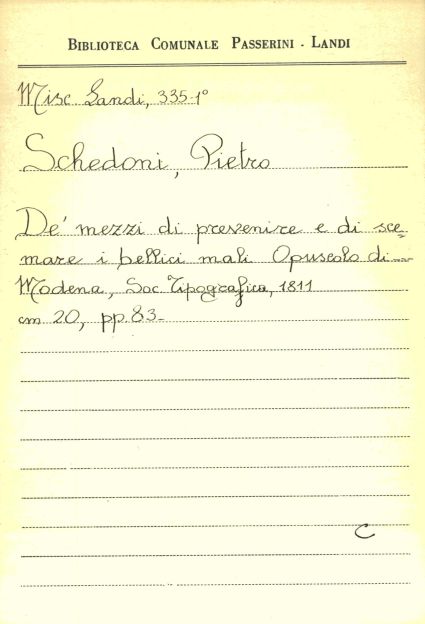 BIBLIOTECA COMUNALE PASSERINI - LANDI
Misc Landi, 335-1°
Schedoni, Pietro
De' mezzi di prevenire e di sce-
mare i bellici mali Opuscolo di—
Modena, Soc. Tipografica, 1811
cm 20, pp. 83-
C